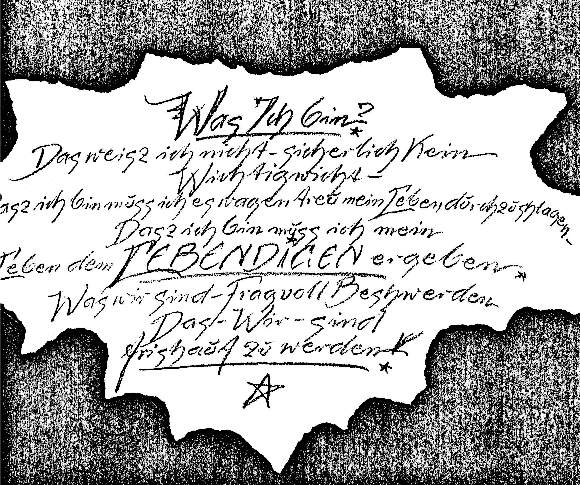 Was Ich bin?
Das weisz ich nicht - sicherlich Kein
Wichtigwicht -
Dasz ich bin müss ich es wagen treü mein Leben dürchzüschlagen -
Dasz ich bin müss ich mein
Leben dem LEBENDIGEN ergeben
Was wir sind - Fragvoll Beshwerden
Das - Wir - sind
zü werden!